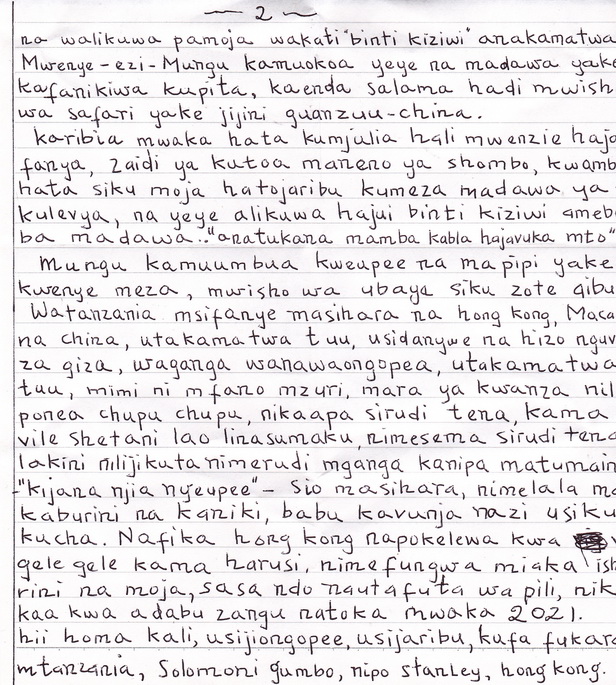 2
na walikuwa pamoja wakati "binti kiziwi" anakamatwa
Mwenye-ezi-Mungu kamuokoa yeye na madawa yake
kafanikiwa kupita, kaenda salama hadi mwish
wa safari yake jijini guanzuu-china.
Karibia mwaka hata kumjulia hali mwenzie haja
fanya, zaidi ya kutoa maneno ya shombo, kwamb
hata siku moja hatojaribu kumeza madawa ya
kulevya, na yeye alikuwa hajui binti kiziwi amebe
ba madawa.."anatukana mamba kabla hajavuka mto"
Mungu kamuumbua kweupee na mapipi yake
kwenye meza, mwisho wa ubaya siku zote aibu
Watanzania msifanye masihara na hong kong, Maca
na china, utakamatwa tuu, usidanywe na hizo nguv
za giza, waganga wanawaongopea, utakamatwa
tuu, mimi ni mfano mzuri, mara ya kwanza nil
ponea chupu chupu, nikaapa sirudi tena, kama
vile shetani lao linasumaku, nimesema sirudi tena
lakini nilijikuta nimerudi mganga kanipa matumain
"kijana njia nyeupee" - Sio masihara, nimelala ma
kaburini na kaniki, babu kavunja nazi usiku
kucha. Nafika hong kong napokelewa kwa v
gele gele kama harusi, nimefungwa miaka ish
rini na moja, sasa ndo nautafuta wa pili, nik
kaa kwa adabu zangu natoka mwaka 2021.
hii homa kali, usijiongopee, usijaribu, kufa fukara
mtanzania, Solomoni gumbo, nipo stanley, hong kong.